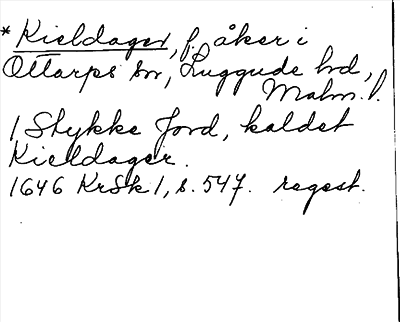 * Kieldager, f. åker i
Ottarps sn, Luggude hd,
Malm. l.
1 Stykke Jord, kaldet
Kieldager.
1646 KrSk 1, s. 547. regest.